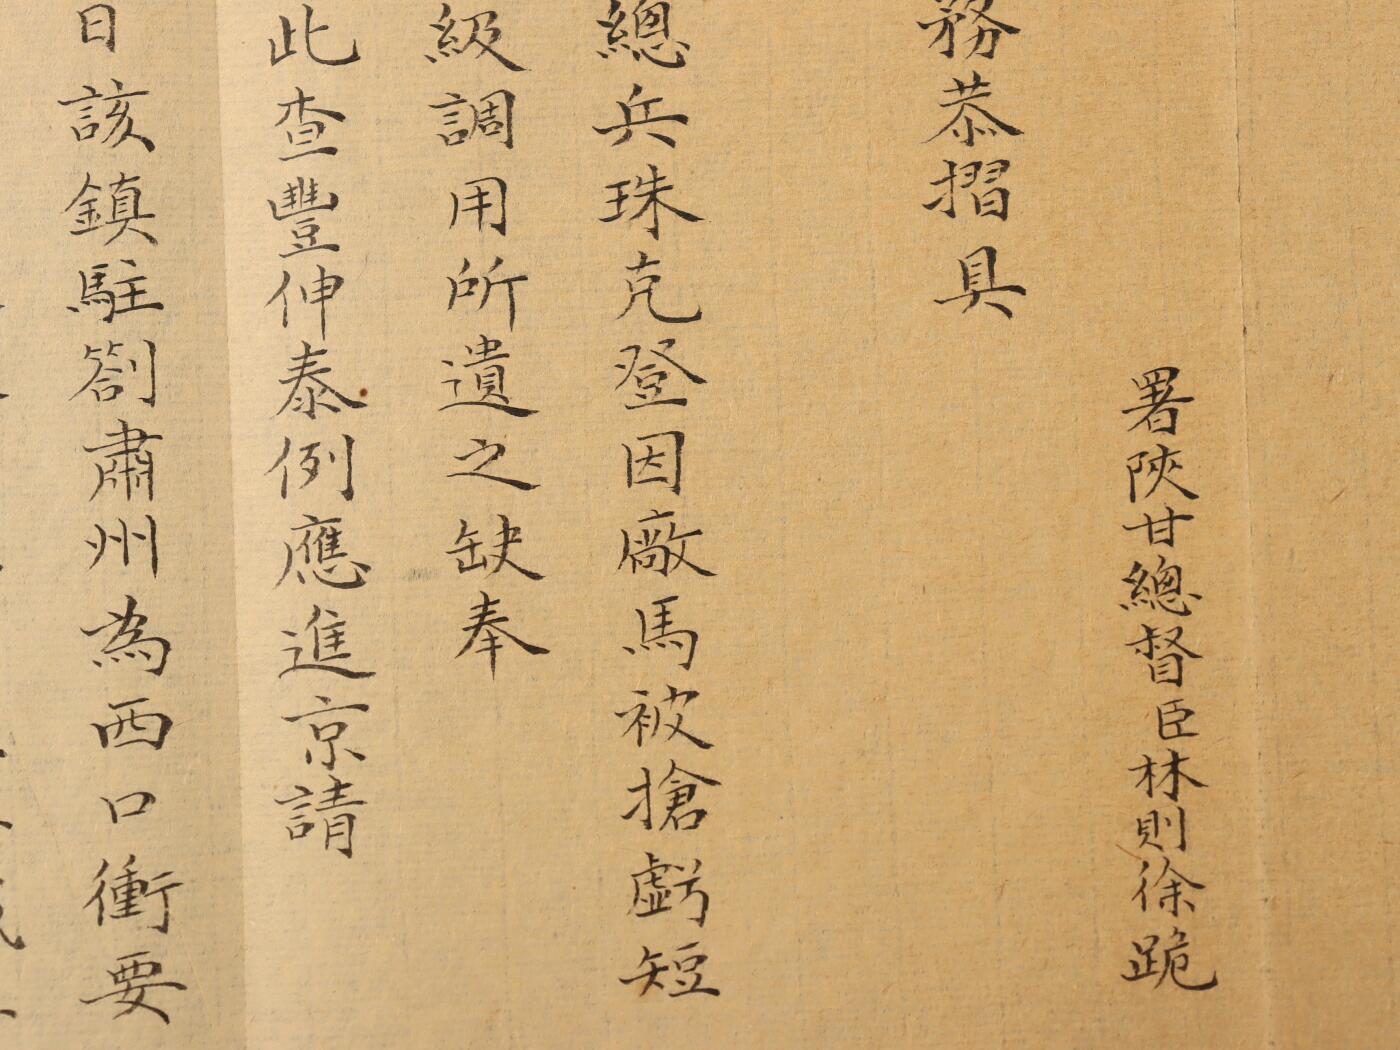 署陝甘總督臣林則徐跪
務恭摺具
總兵珠克登因廠馬被搶虧短
級調用所遺之缺奉
此查豐伸泰例應進京請
日該鎮駐劄肅州為西口衝要